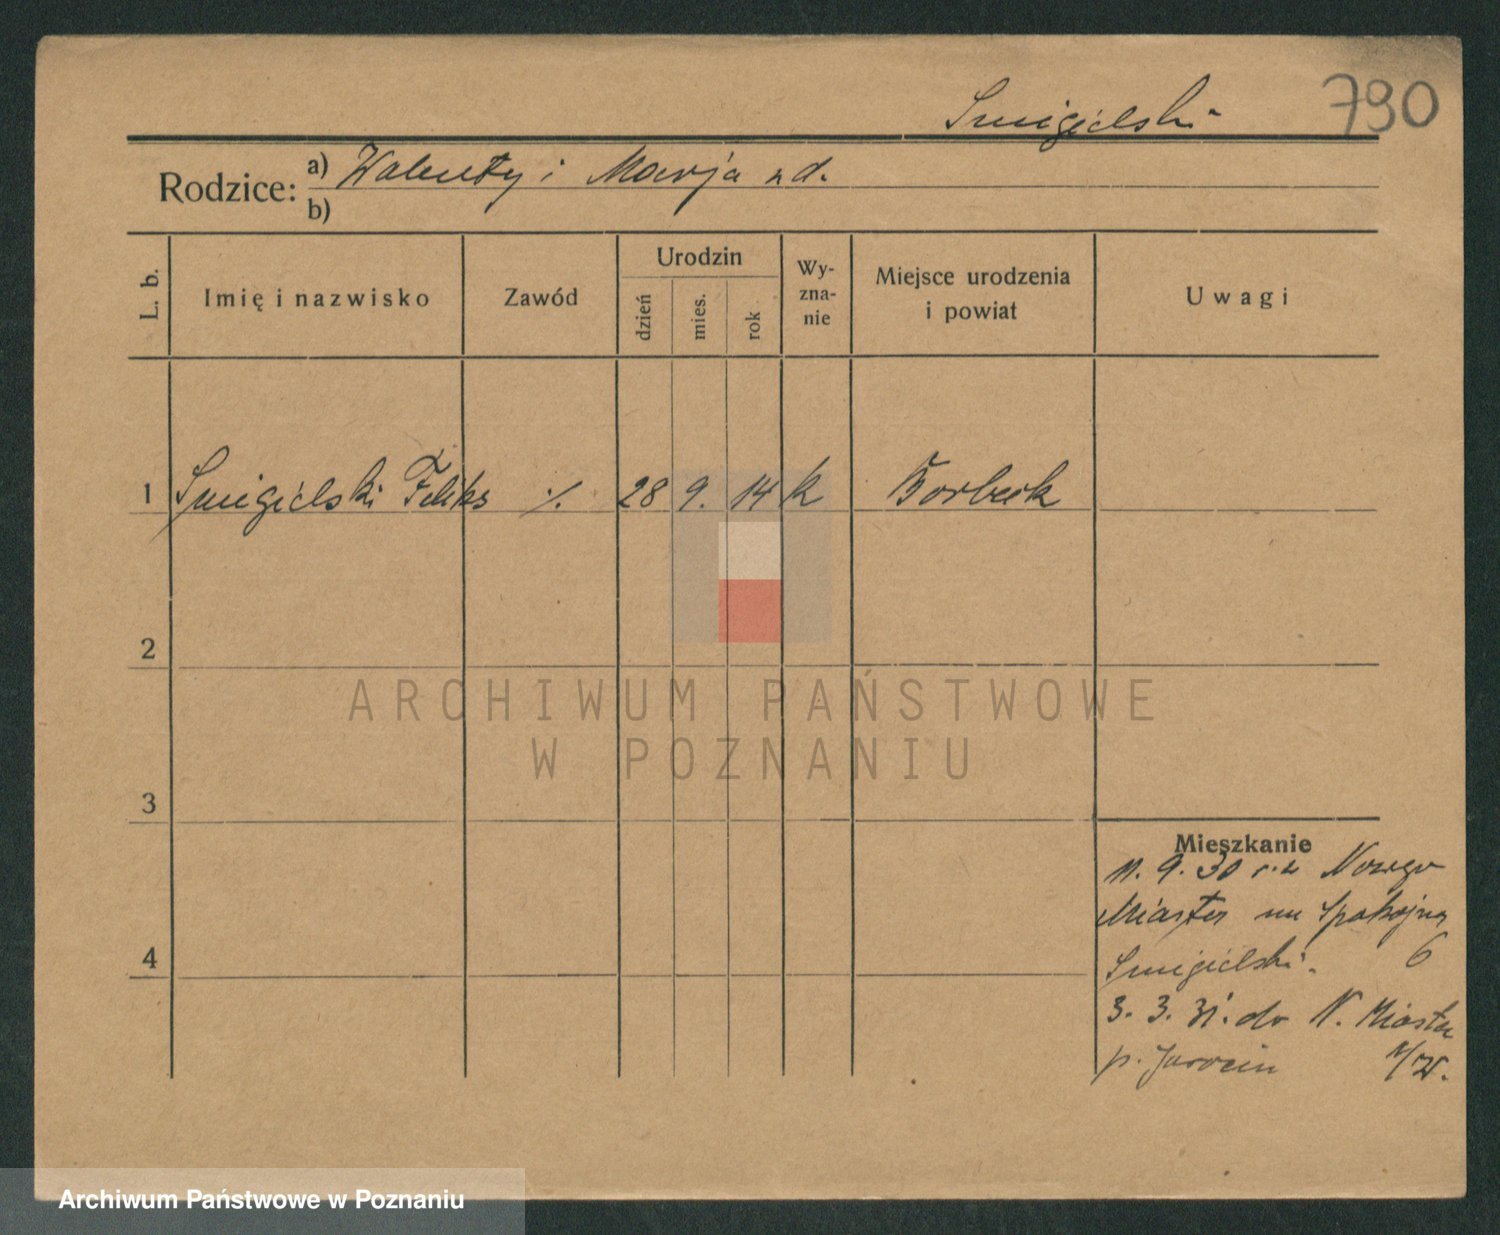 Smigielski 790
Rodzice: a) Walenty i Marja z d.
b)
L. b. Imię i nazwisko Zawód Urodzin dzień mies. rok Wy-zna-nie Miejsce urodzenia i powiat Uwagi
1 Smigielski Feliks ./. 28 9. 14 k Borbeck
2
ARCHIWUM PAŃSTWOWE
W POZNANIU
3
Mieszkanie
11. 9. 30 r. z Nowego
Miasta Spokojna
4 Smigielski. 6
3. 3. 31. do N. Miasta
p. Jarocin n/W.
Archiwum Państwowe w Poznaniu